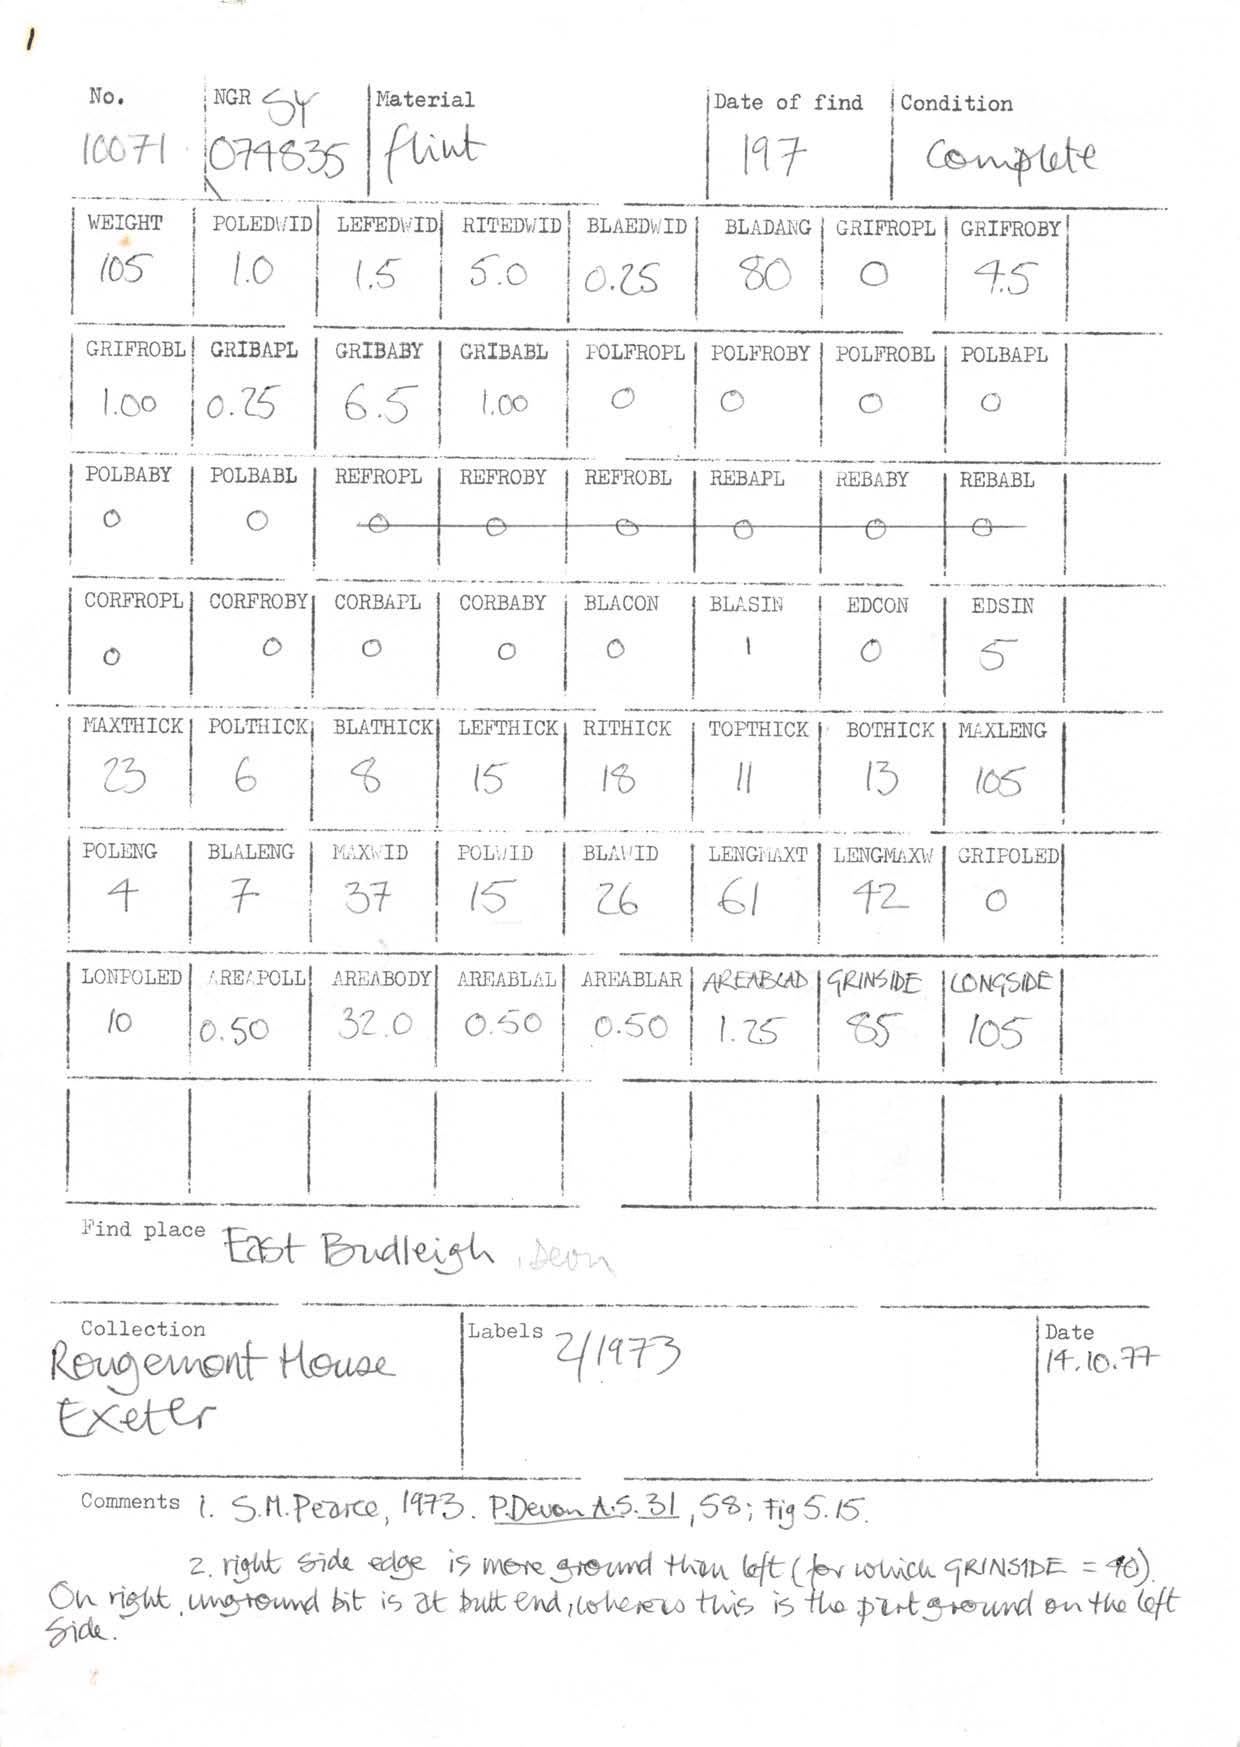 1
No. NGR SY Material Date of find Condition
10071 074835 flint 197 Complete
WEIGHT POLEDWID LEFEDWID RITEDWID BLAEDWID BLADANG GRIFROPL GRIFROBY
105 1.0 1.5 5.0 0.25 80 0 4.5
GRIFROBL GRIBAPL GRIBABY GRIBABL POLFROPL POLFROBY POLFROBL POLBAPL
1.00 0.25 6.5 1.00 0 0 0 0
POLBABY POLBABL REFROPL REFROBY REFROBL REBAPL REBABY REBABL
0 0 0 0 0 0 0 0
CORFROPL CORFROBY CORBAPL CORBABY BLACON BLASIN EDCON EDSIN
0 0 0 0 0 1 0 5
MAXTHICK POLTHICK BLATHICK LEFTHICK RITHICK TOPTHICK BOTHICK MAXLENG
23 6 8 15 18 11 13 105
POLENG BLALENG MAXWID POLWID BLAWID LENGMAXT LENGMAXW GRIPOLED
4 7 37 15 26 61 42 0
LONPOLED AREAPOLL AREABODY AREABLAL AREABLAR AREABLAD GRINSIDE LONGSIDE
10 0.50 32.0 0.50 0.50 1.25 85 105
Find place East Budleigh, Devon
Collection Labels 2/1973 Date
Rougemont House 14.10.77
Exeter
Comments 1. S.M. Pearce, 1973. P. Devon A.S. 31, 58; Fig 5.15.
2. right side edge is more ground than left (for which GRINSIDE = 40).
On right, unground bit is at butt end, whereas this is the part ground on the left
side.